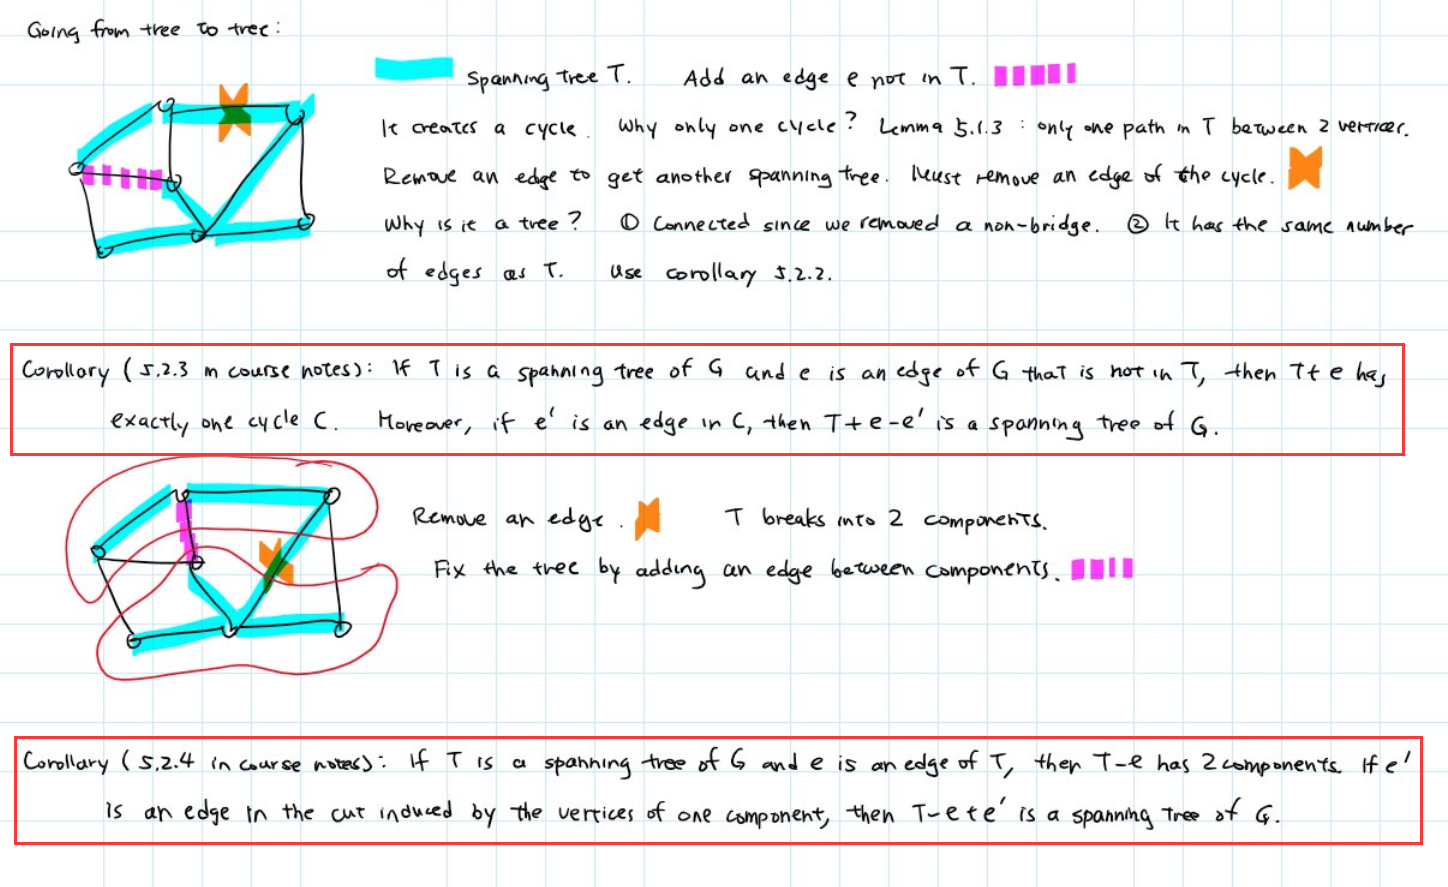 Going from tree to tree:
Spanning tree T. Add an edge e not in T.
It creates a cycle. Why only one cycle? Lemma 5.1.3 : only one path in T between 2 vertices.
Remove an edge to get another spanning tree. Must remove an edge of the cycle.
Why is it a tree? ① Connected since we removed a non-bridge. ② It has the same number
of edges as T. Use corollary 5.2.2.
Corollary (5.2.3 in course notes): If T is a spanning tree of G and e is an edge of G that is not in T, then T+e has
exactly one cycle C. Moreover, if e' is an edge in C, then T+e-e' is a spanning tree of G.
Remove an edge. T breaks into 2 components.
Fix the tree by adding an edge between components.
Corollary (5.2.4 in course notes): If T is a spanning tree of G and e is an edge of T, then T-e has 2 components. If e'
is an edge in the cut induced by the vertices of one component, then T-e+e' is a spanning tree of G.